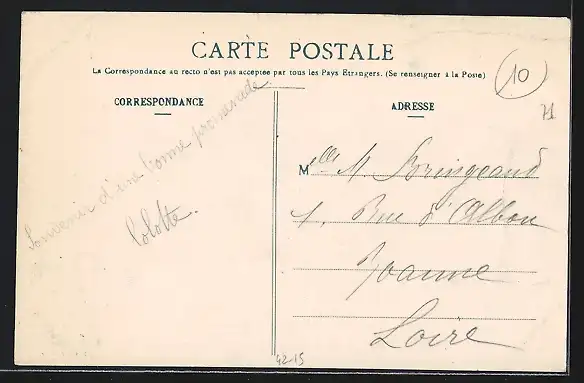 CARTE POSTALE
La Correspondance au recto n'est pas acceptée par tous les Pays Etrangers. (Se renseigner à la Poste)
10
CORRESPONDANCE
Souvenir d'une bonne promenade
Lolotte.
ADRESSE
Melle M. Bringeaud
1, Rue d'Albon
Roanne
Loire
42-15